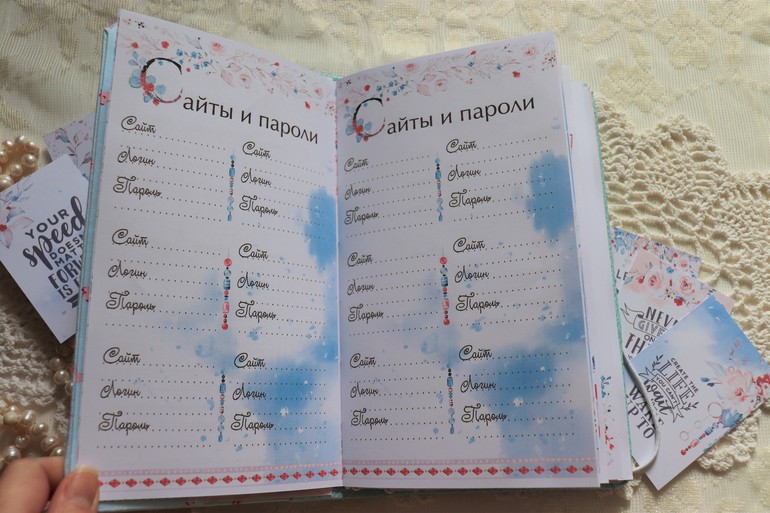 Сайты и пароли
Сайт
Логин
Пароль
Сайт
Логин
Пароль
Сайт
Логин
Пароль
Сайт
Логин
Пароль
Сайт
Логин
Пароль
Сайт
Логин
Пароль
Сайты и пароли
Сайт
Логин
Пароль
Сайт
Логин
Пароль
Сайт
Логин
Пароль
Сайт
Логин
Пароль
Сайт
Логин
Пароль
Сайт
Логин
Пароль
YOUR
Speed
IS
GIVE
CREATE THE
LIFE
YOU CAN'T
UP TO